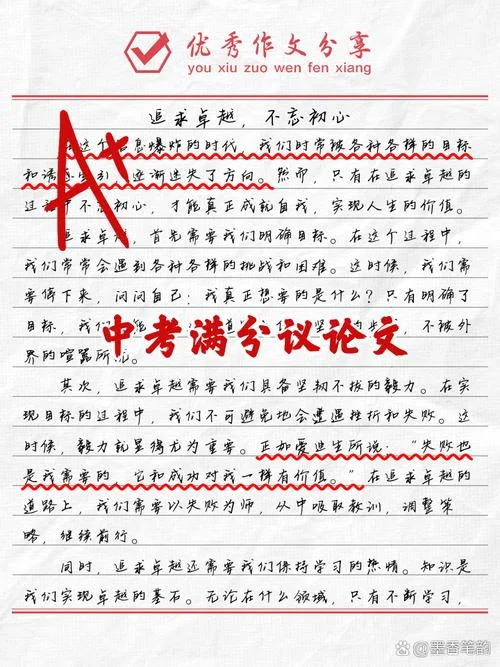 优秀作文分享
you xiu zuo wen fen xiang
追求卓越，不忘初心
A+
这个 息爆炸的时代，我们时常被各种各样的目标
和 逐渐迷失了方向。然而，只有在追求卓越的
过 中不忘初心，才能真正成就自我，实现人生的价值。
追求卓 ，首先需要我们明确目标。在这个过程中，
我们常常会遇到各种各样的挑战和困难。这时候，我们需
要停下来，问问自己：我真正想要的是什么？只有明确了
目标，我们 不被外
中考满分议论文
界的喧嚣所
其次，追求卓越需要我们具备坚韧不拔的毅力。在实
现目标的过程中，我们不可避免地会遭遇挫折和失败。这
时候，毅力就显得尤为重要。正如爱迪生所说：“失败也
是我需要的，它和成功对我一样有价值。”在追求卓越的
道路上，我们需要以失败为师，从中吸取教训，调整策
略，继续前行。
同时，追求卓越还需要我们保持学习的热情。知识是
我们实现卓越的基石。无论在什么领域，只有不断学习，
墨香笔韵